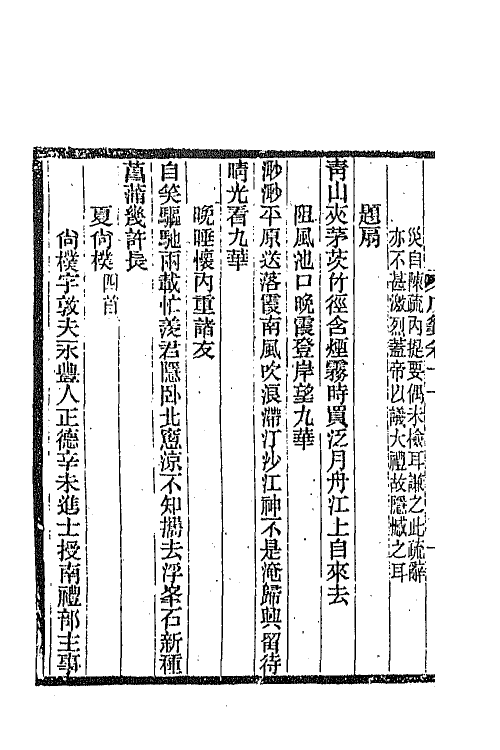 災自陳疏內提要偶未檢耳謙之此疏辭
亦不甚激烈蓋帝以議大禮故隱憾之耳
題扇
靑山夾茅茨竹徑含煙霧時買泛月舟江上自來去
阻風池口晚霞登岸望九華
渺渺平原送落霞南風吹浪滯汀沙江神不是淹歸興留待
晴光看九華
晚睡懷內重諸友
自笑驅馳兩載忙羨君隱卧北窻涼不知攜去浮峯石新種
菖蒲幾許長
夏尙樸四首
尙樸字敦夫永豐人正德辛未進士授南禮部主事